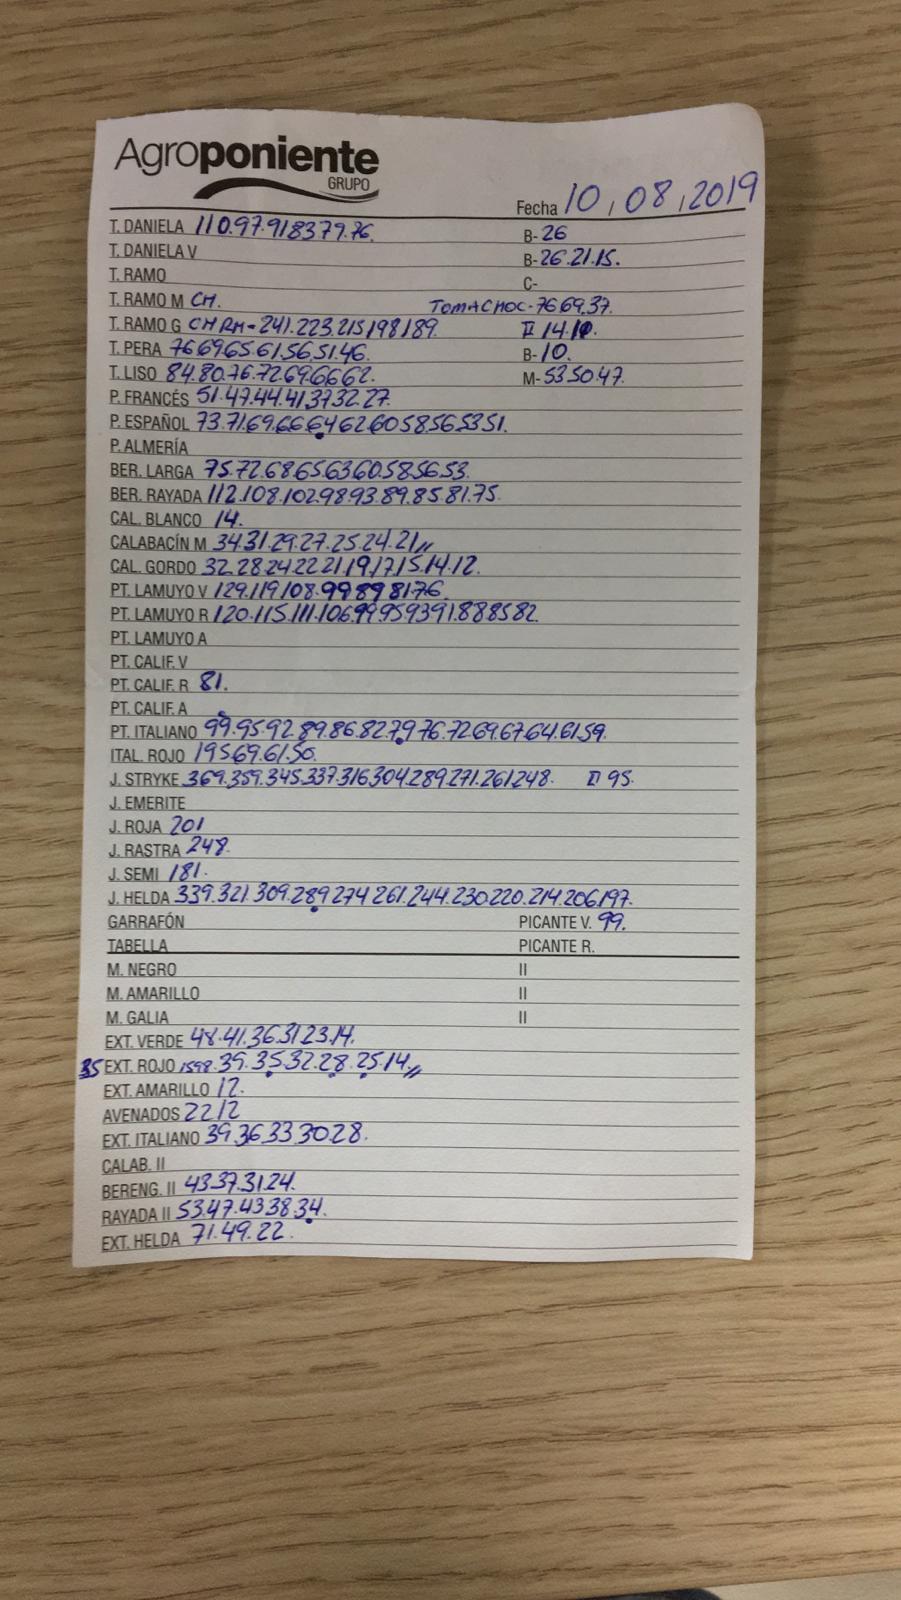 Agroponiente
GRUPO
Fecha 10, 08, 2019
T. DANIELA 110.97.91837976. B-26
T. DANIELA V B-26.21.15.
T. RAMO C-
T. RAMO M CH. TOMACHOC-766937.
T. RAMO G CHRM-241.223.215198189. II 14.10.
T. PERA 766965.6156.51.46. B-10.
T. LISO 84.80.76.7269.6662. M-535047.
P. FRANCÉS 51.47.44.41373227.
P. ESPAÑOL 73.7169.66646260585653 51.
P. ALMERÍA
BER. LARGA 75.7268656360585653.
BER. RAYADA 112.108.102.9893.89.8581.75.
CAL. BLANCO 14.
CALABACÍN M 3431.29.27.25.24.21//
CAL. GORDO 32.28242221.1917151412.
PT. LAMUYO V 129.119108.99898176.
PT. LAMUYO R 120.115.111.106.99.959391.888582.
PT. LAMUYO A
PT. CALIF. V
PT. CALIF. R 81.
PT. CALIF. A
PT. ITALIANO 99.95.92 89.86.82.7976.7269.67.64.6159.
ITAL. ROJO 19569.6150.
J. STRYKE 369.359.345.337.316304.289.271.261248. II 95.
J. EMERITE
J. ROJA 201
J. RASTRA 248.
J. SEMI 181.
J. HELDA 339.321.309.289274261.244.230220.214.206.197.
GARRAFÓN PICANTE V. 99.
TABELLA PICANTE R.
M. NEGRO II
M. AMARILLO II
M. GALIA II
EXT. VERDE 48.41.36.3123.14.
35 EXT. ROJO 1598.39.3532.28.25.14//
EXT. AMARILLO 12.
AVENADOS 2212
EXT. ITALIANO 3936333028.
CALAB. II
BERENG. II 43.37.3124.
RAYADA II 53.47.433834.
EXT. HELDA 71.49.22.